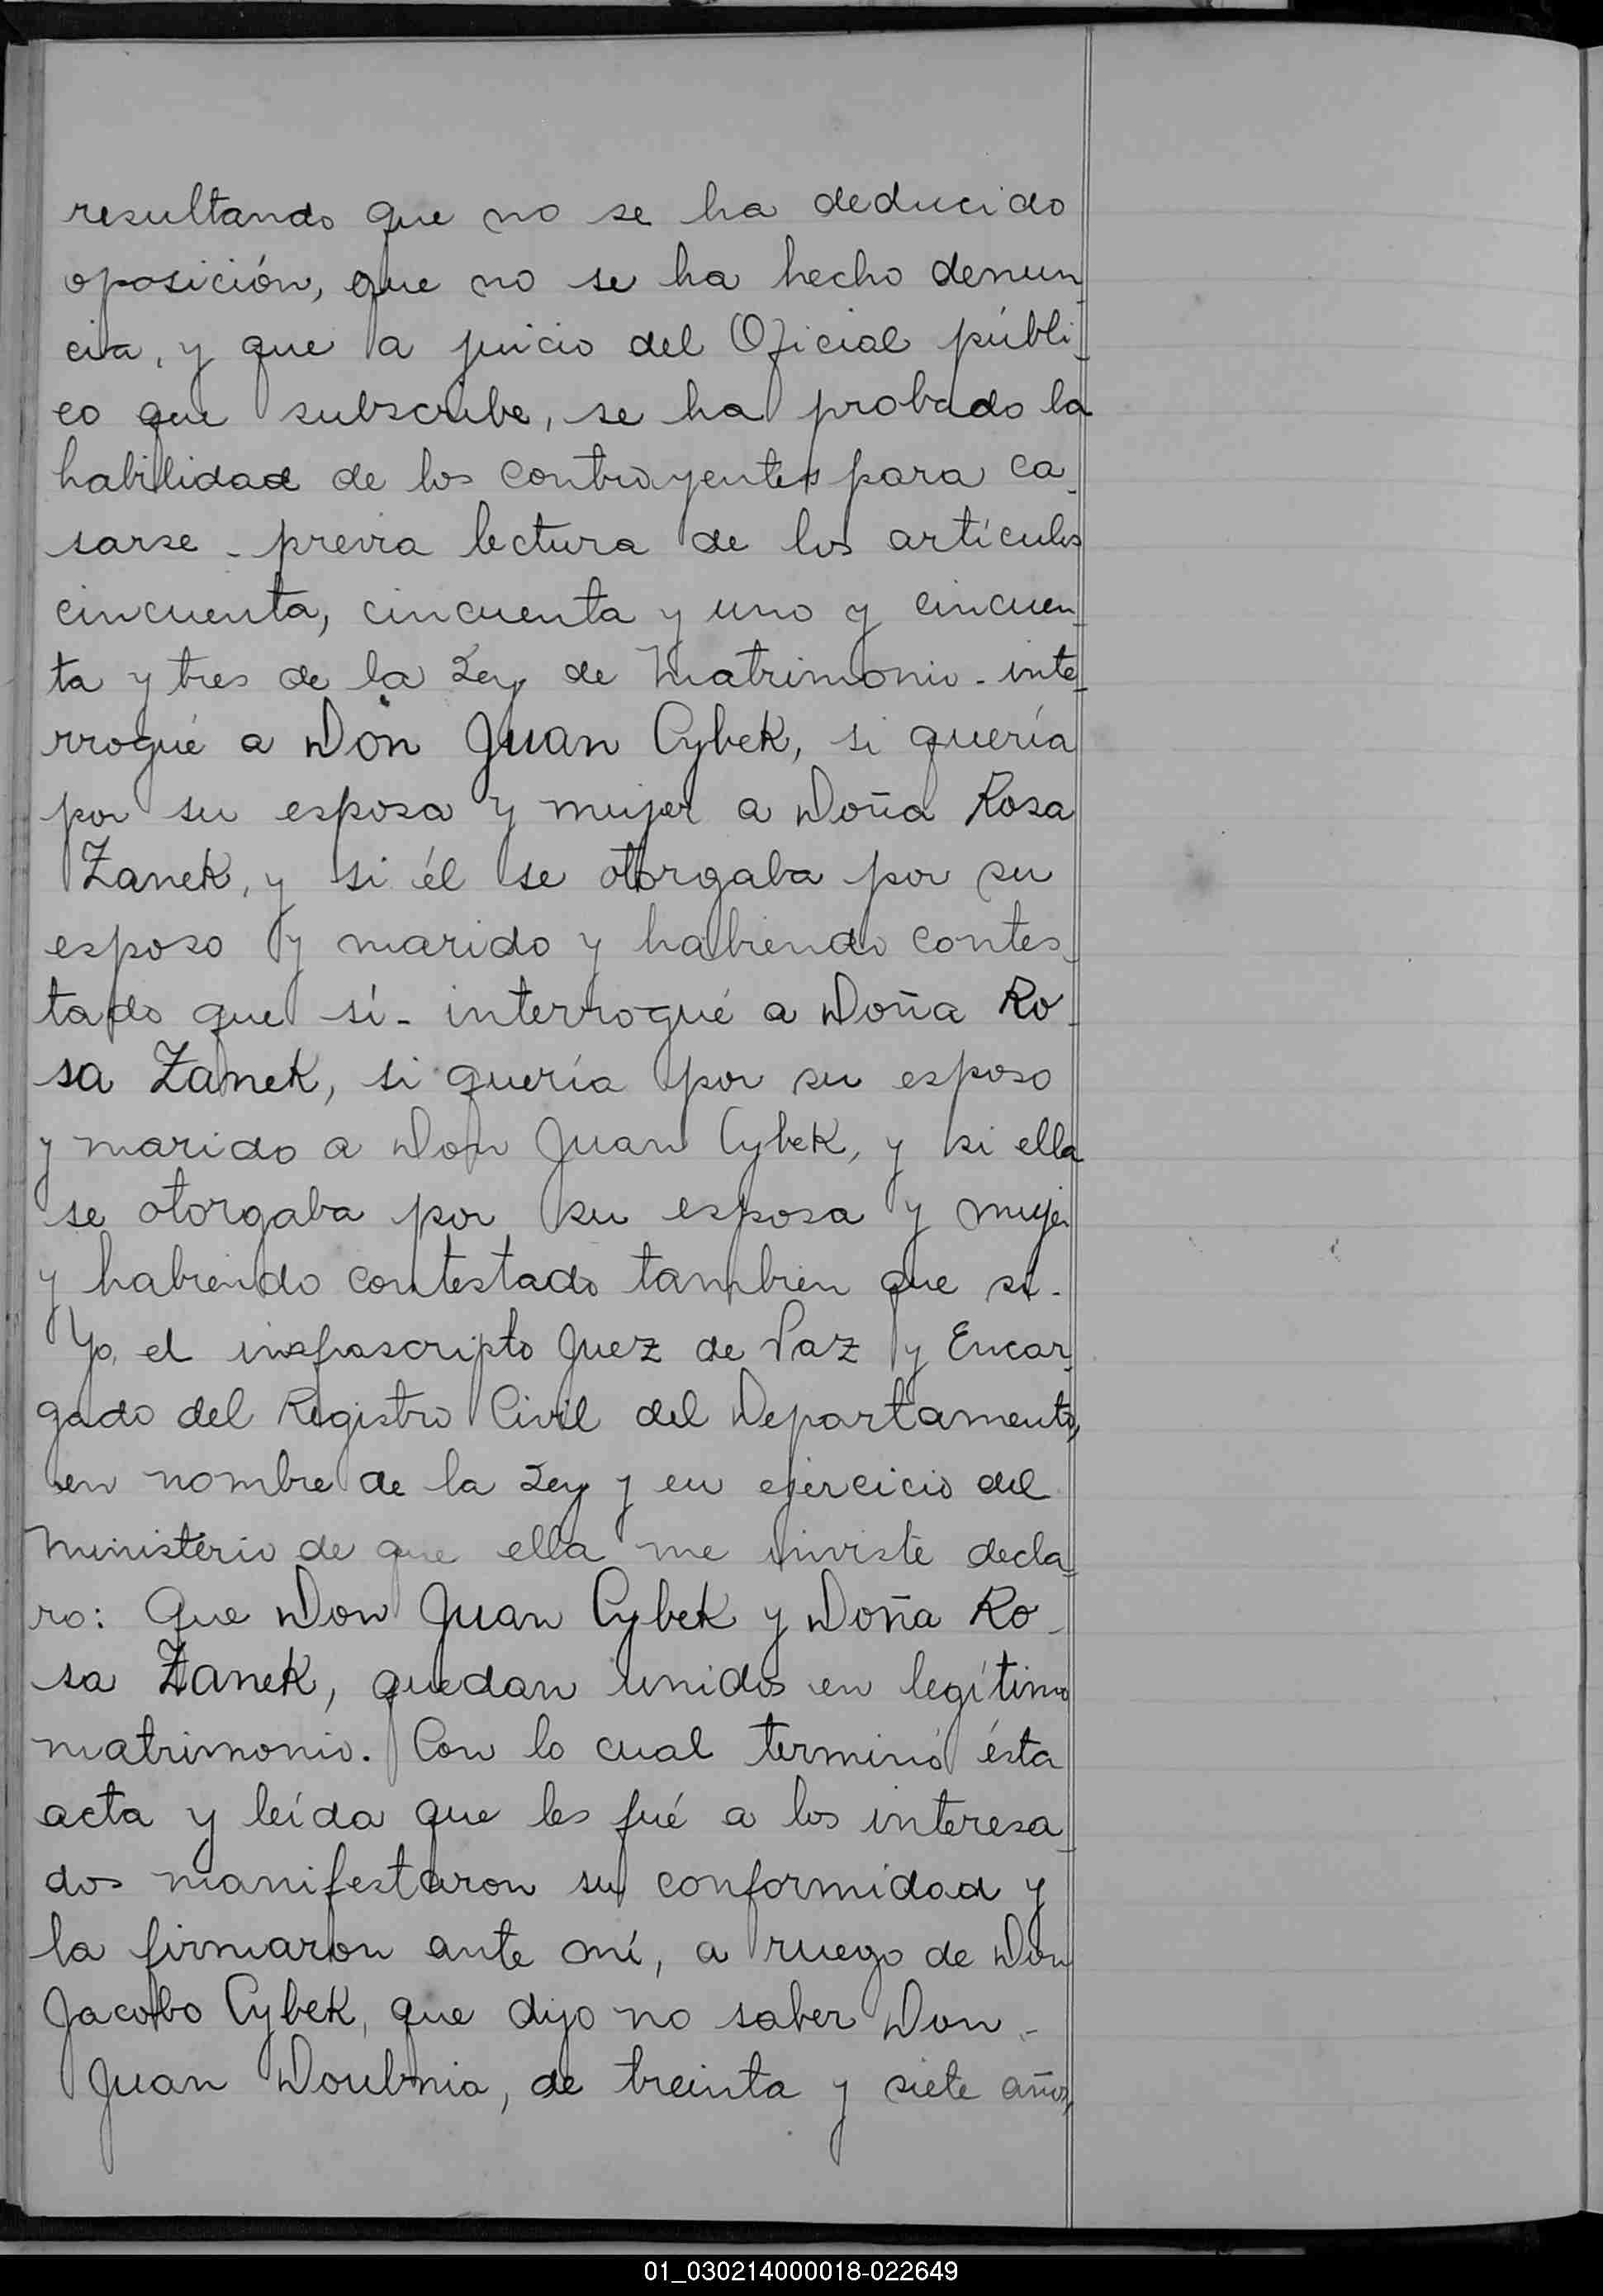 resultando que no se ha deducido
oposición, que no se ha hecho denun-
cia, y que a juicio del Oficial públi-
co que subscribe, se ha probado la
habilidad de los contrayentes para ca-
sarse - previa lectura de los artículos
cincuenta, cincuenta y uno y cincuen-
ta y tres de la Ley de Matrimonio - inte-
rrogué a Don Juan Cybek, si quería
por su esposa y mujer a Doña Rosa
Zanek, y si él se otorgaba por su
esposo y marido y habiendo contes-
tado que sí - interrogué a Doña Ro-
sa Zanek, si quería por su esposo
y marido a Don Juan Cybek, y si ella
se otorgaba por su esposa y mujer
y habiendo contestado tambien que sí -
Yo, el infrascripto Juez de Paz y Encar-
gado del Registro Civil del Departamento,
en nombre de la Ley y en ejercicio del
Ministerio de que ella me inviste decla-
ro: Que Don Juan Cybek y Doña Ro-
sa Zanek, quedan unidos en legítimo
matrimonio. Con lo cual terminó ésta
acta y leída que les fué a los interesa-
dos manifestaron su conformidad y
la firmaron ante mí, a ruego de Don
Jacobo Cybek, que dijo no saber Don -
Juan Doubnia, de treinta y siete años,
01_030214000018-022649